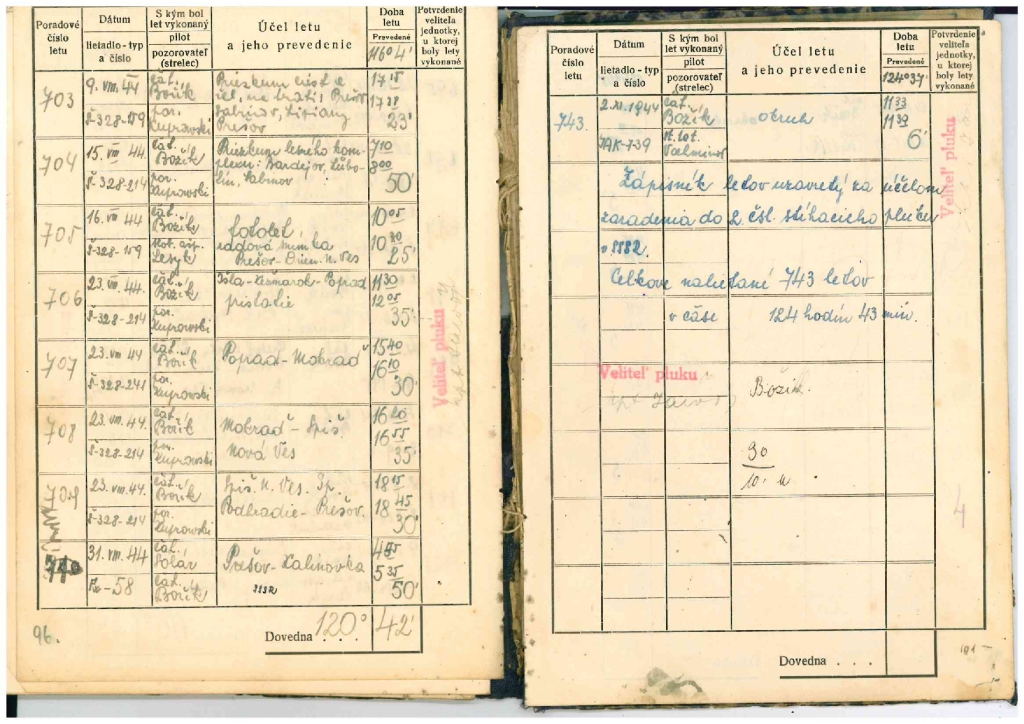 Poradové číslo letu
Dátum
lietadlo - typ a číslo
S kým bol let výkonaný
pilot
pozorovateľ (strelec)
Účel letu
a jeho prevedenie
Doba letu
Prevedené
116° 4'
Potvrdenie veliteľa jednotky, u ktorej boly lety vykonané
703
9. VIII. 44
Š-328-159
čat. Božík
por. Kuprovski
Sabinov, Lipiany
Prešov
17 15
17 38
23'
704
15. VIII 44.
Š-328-214
čat. Božík
por. Kuprovski
Prieskum letného kom-
plexu: Bardejov, Ľubo-
tín, Sabinov
7 10
8 00
50'
705
16. VIII 44
Š-328-159
čat. Božík
fotolet,
Prešov-
10 05
10 30
25'
706
23. VIII 44.
Š-328-214
čat. Božík
por. Kuprovski
Išla-Kežmarok-Poprad
pristatie
11 30
12 05
35'
707
23. VIII 44
Š-328-241
čat. Božík
por. Kuprovski
Poprad-Mokraď
15 40
16 10
30'
708
23. VIII. 44.
Š-328-214
čat. Božík
por. Kuprovski
Mokraď - Spiš.
Nová Ves
16 20
16 55
35'
709
23. VIII. 44.
Š-328-214
čat. Božík
por. Kuprovski
Spiš. N. Ves. Sp.
Podhradie-Prešov.
18 15
18 45
30'
710
31. VIII. 44
-58
čat. Polár
čat. Božík
Prešov-Kalinovka
ZSSR
4 45
5 35
50'
Veliteľ pluku
96.
Dovedna . . . .
120° 42'
Poradové číslo letu
Dátum
lietadlo - typ a číslo
S kým bol let výkonaný
pilot
pozorovateľ (strelec)
Účel letu
a jeho prevedenie
Doba letu
Prevedené
124° 37'
Potvrdenie veliteľa jednotky, u ktorej boly lety vykonané
743.
2. XI. 1944
JAK-7-39
čat. Božík
okruh
11 33
11 39
6'
Veliteľ pluku
Zápisník letov uzavretý za účelom
zaradenia do 2. čsl. stíhacieho pluku
v SSSR.
Celkove nalietaní 743 letov
v čase 124 hodín 43 min.
Veliteľ pluku
Božík.
30
10.
4
Dovedna . . . .